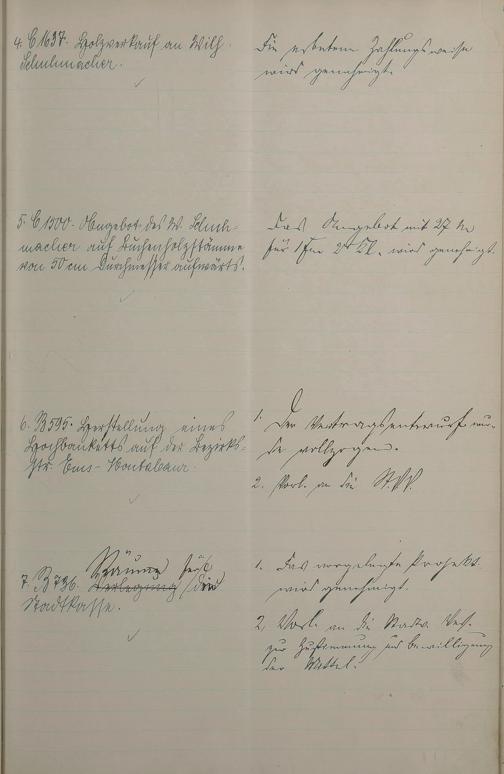 4. C 1637. Holzverkauf an Wilh.
Schuhmacher.
Die erbetene Zahlungsweise
wird genehmigt.
5. C 1500. Angebot des W. Schuh-
macher auf Buchenholzstämme
von 50 cm Durchmesser aufwärts.
Das Angebot mit 27 M
für 1 Fm 2r Kl. wird genehmigt.
6. B 595. Herstellung eines
Hochbanketts auf der Bezirks-
str. Ems-Montabaur.
1. Der Vertragsentwurf wur-
de vollzogen.
2. Vorl. an die St.V.V.
7. B 736. Räume für die
Stadtkasse.
1. Das vorgelegte Projekt
wird genehmigt.
2. Vorl. an die Stadtv. Vers.
zur Zustimmung und Bewilligung
der Mittel.